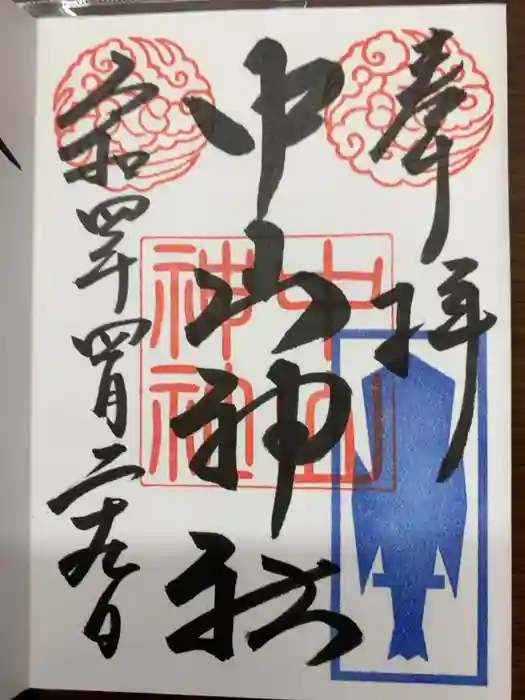 奉拝
中山神社
中山
神社
令和四年四月二十九日